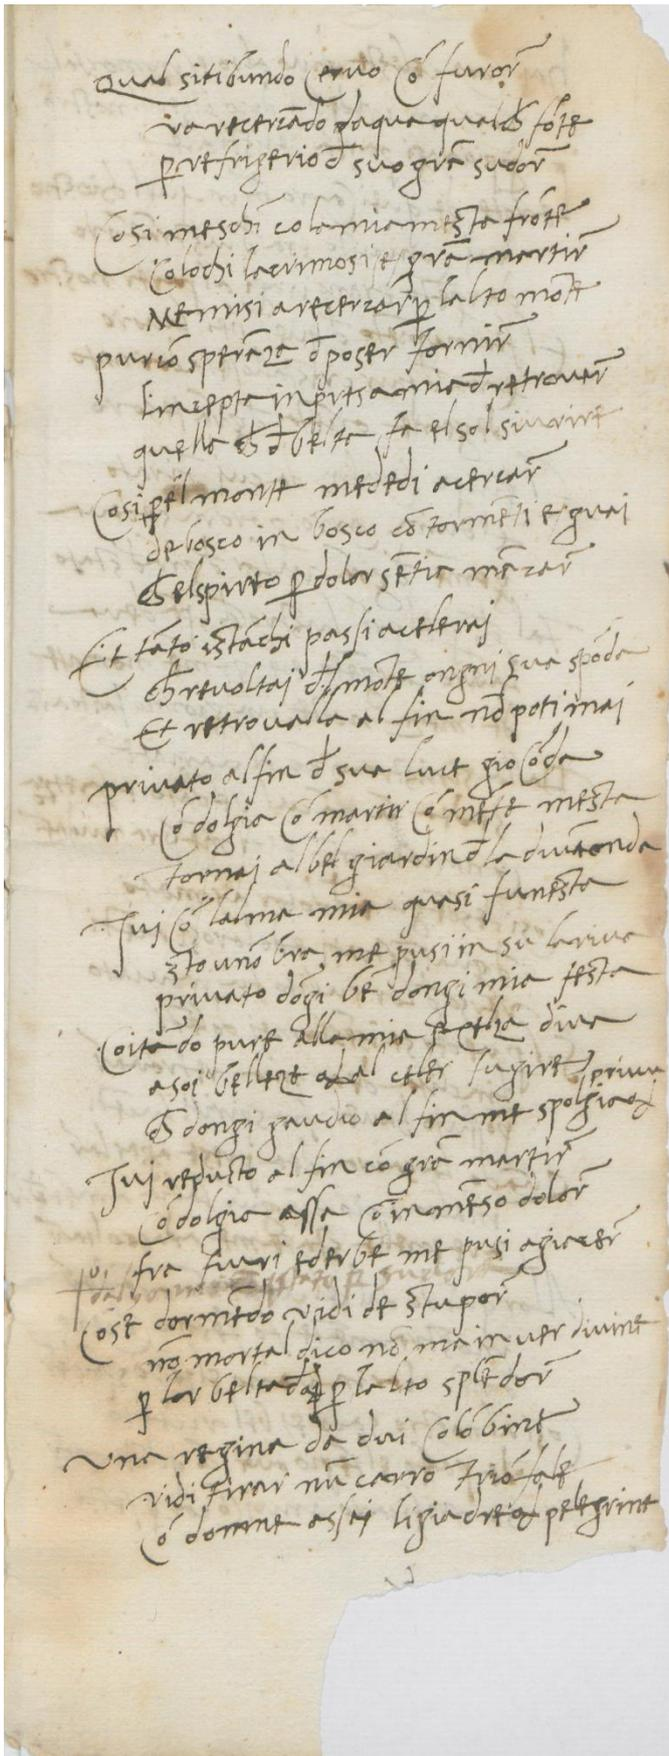 Qual sitibundo Cervo cō furor̄
va recercādo daqua qualch̄ fōte
ꝑ refrigerio d̄ suo grā sudor̄
Cosi meschī cola mia mesta frōte
Colochi lacrimosi e grā martir̄
Me misi a recercar̄ ꝑ lalto mōte
pur cō sperāza d̄ poser fornir̄
Lincepta inpresa mia d̄ retrouar̄
quella ch̄ d̄ belta fa el sol
Cosi ꝑ el monte mededi a cercar̄
de bosco in bosco cō tormēti e guai
ch̄ el spirto ꝑ dolor sētia mācar̄
Et tāto istāchi passi acelerai
ch̄ revoltai dl mōte ongni sua spōda
Et retrovalla al fin nō poti mai
privato al fin d̄ sua luce giocōda
cō dolgia cō martir cō mēte mesta
tornai al bel giardin d̄ la divā onda
Ivi cō lalma mia quasi funesta
sto unōbra me pusi in su la riva
privato dogi bē dongi mia festa
Coitādo pure alla mia diva
a soi belleze al celer fugire
ch̄ dongi gaudio al fin me spolgia priva
Ivi reducto al fin cō grā martir̄
cō dolgia assa cō inmēso dolor̄
fra fiuri ed erbe me pusi a giacer̄
Cose dormēdo vidi de stupor̄
nō mortal dico nō ma in ver divine
ꝑ lor belta ꝑ lalto splēdor̄
Una regina da dui colōbine
vidi tirar nū carro triōfale
cō donne assai ligiadre pelegrine